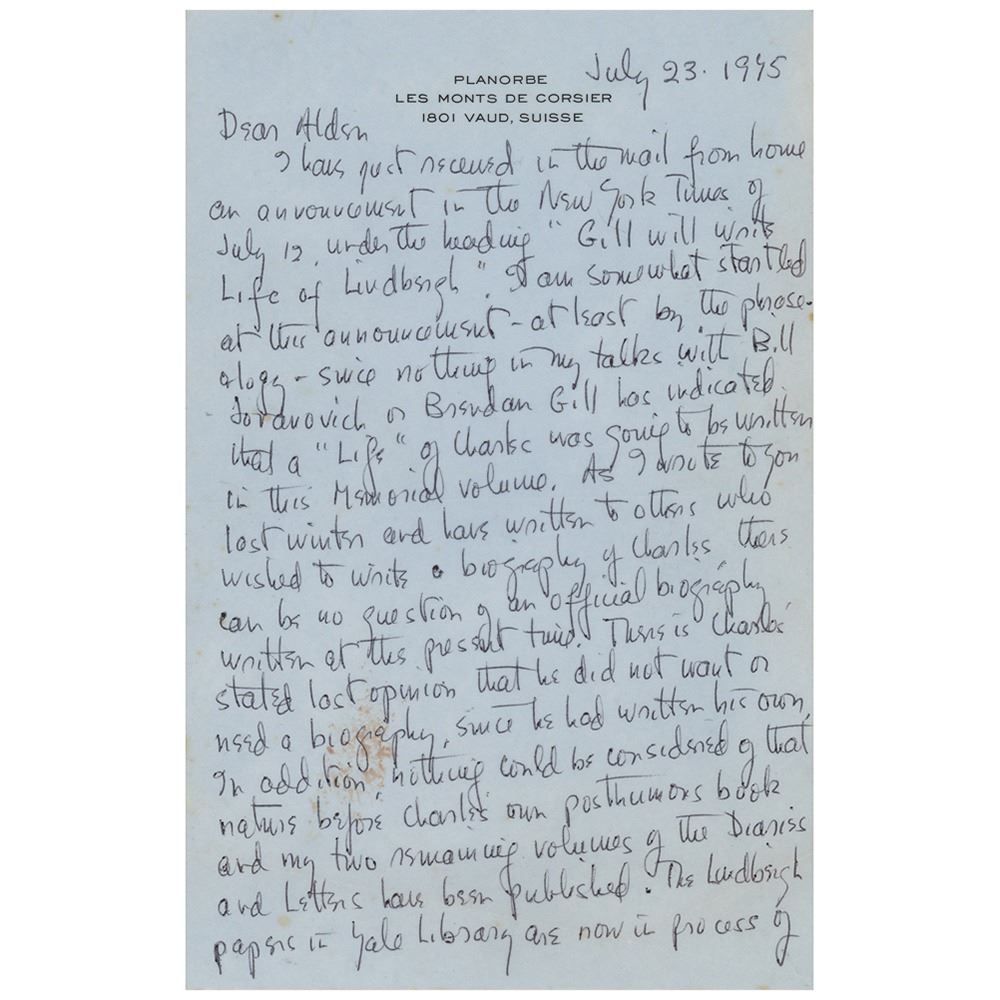 July 23. 1975
PLANORBE
LES MONTS DE CORSIER
1801 VAUD, SUISSE
Dear Alden
I have just received in the mail from home
an announcement in the New York Times of
July 12, under the heading "Gill will write
Life of Lindbergh". I am somewhat startled
at this announcement - at least by the phrase-
ology - since nothing in my talks with Bill
Jovanovich or Brendan Gill has indicated
that a "Life" of Charles was going to be written
in this Memorial volume. As I wrote to you
last winter and have written to others who
wished to write a biography of Charles, there
can be no question of an official biography
written at the present time. There is Charles'
stated last opinion that he did not want or
need a biography, since he had written his own.
In addition, nothing could be considered of that
nature before Charles' own posthumous book
and my two remaining volumes of the Diaries
and Letters have been published. The Lindbergh
papers in Yale Library are now in process of